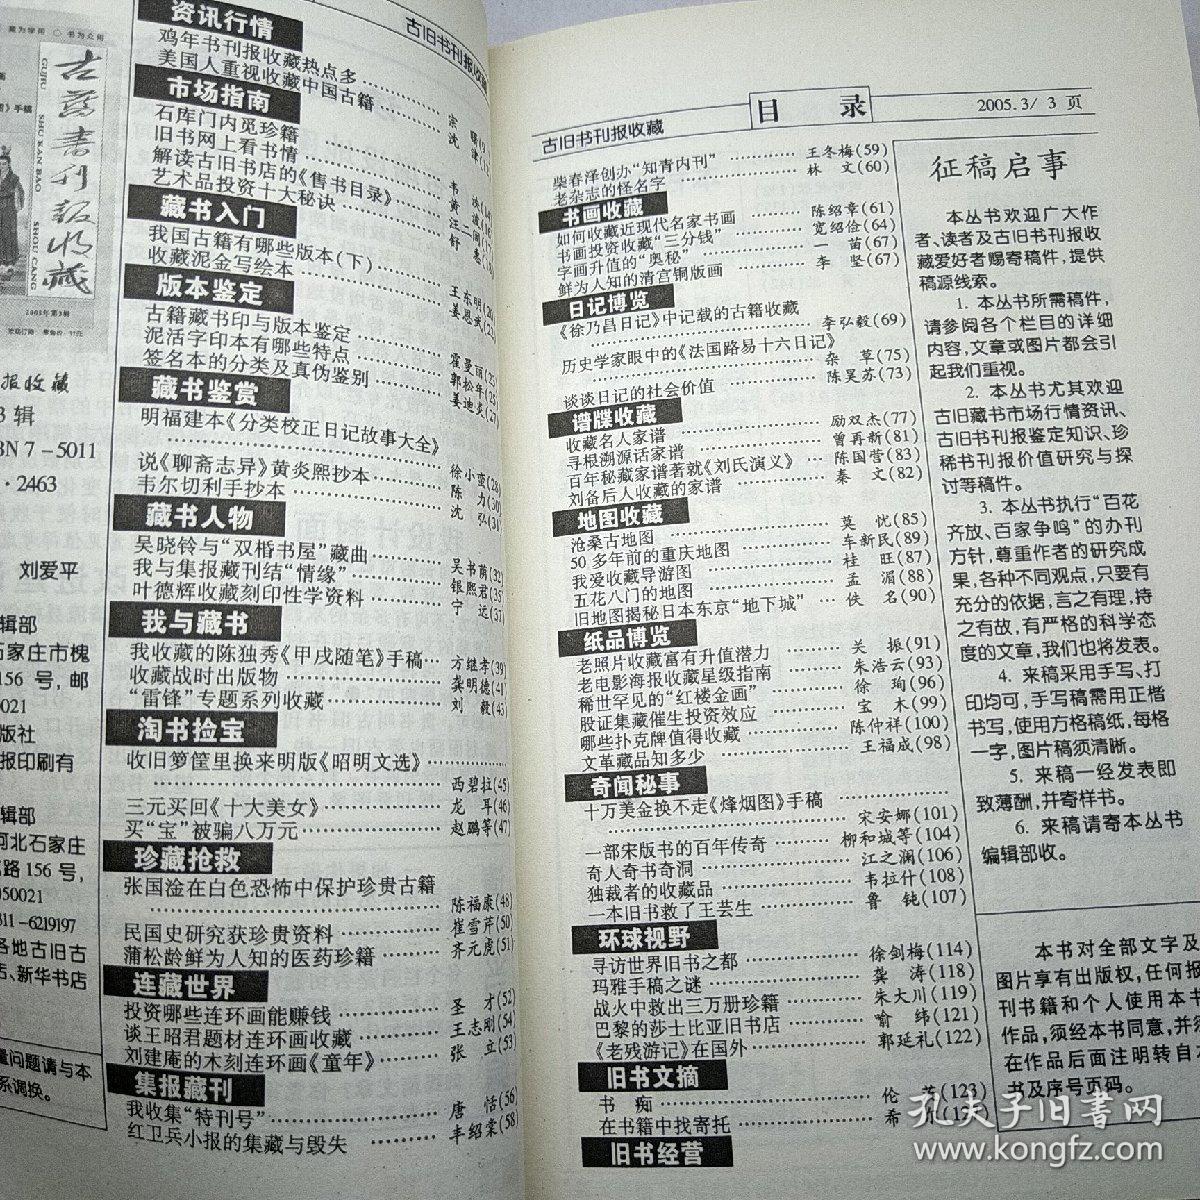 古旧书刊报收藏
藏为学用 ○ 书为众用
古旧书刊报收藏
GUJIU
SHU KAN BAO
SHOU CANG
2005年第3辑
报收藏
3 辑
BN 7－5011
·2463
刘爱平
辑部
石家庄市槐
156 号,邮
0021
版社
报印刷有
辑部
河北石家庄
路 156 号,
050021
311-6219197
各地古旧古
店、新华书店
量问题请与本
系调换。
资讯行情
鸡年书刊报收藏热点多
美国人重视收藏中国古籍
市场指南
石库门内觅珍籍
旧书网上看书情
解读古旧书店的《售书目录》
艺术品投资十大秘诀
藏书入门
我国古籍有哪些版本(下) 王东明(20)
收藏泥金写绘本
版本鉴定
古籍藏书印与版本鉴定
泥活字印本有哪些特点 郭松年(25)
签名本的分类及真伪鉴别 姜迪炎(27)
藏书鉴赏
明福建本《分类校正日记故事大全》
徐小蛮(28)
说《聊斋志异》黄炎熙抄本 陈 力(30)
韦尔切利手抄本 沈 弘(31)
藏书人物
吴晓铃与“双楷书屋”藏曲 吴书荫(32)
我与集报藏刊结“情缘” 银熙君(35)
叶德辉收藏刻印性学资料 宁 远(37)
我与藏书
我收藏的陈独秀《甲戌随笔》手稿 方继孝(39)
收藏战时出版物 龚明德(41)
“雷锋”专题系列收藏 刘 毅(43)
淘书捡宝
收旧箩筐里换来明版《昭明文选》
西碧拉(45)
三元买回《十大美女》 龙 耳(46)
买“宝”被骗八万元 赵鹏等(47)
珍藏抢救
张国淦在白色恐怖中保护珍贵古籍
陈福康(48)
民国史研究获珍贵资料 崔雪芹(50)
蒲松龄鲜为人知的医药珍籍 齐元虎(51)
连藏世界
投资哪些连环画能赚钱 圣 才(52)
谈王昭君题材连环画收藏 王志刚(54)
刘建庵的木刻连环画《童年》 张 立(53)
集报藏刊
我收集“特刊号” 唐 恬(56)
红卫兵小报的集藏与毁失 丰绍棠(58)
古旧书刊报收藏
目 录
2005.3/ 3 页
柴春泽创办“知青内刊” 王冬梅(59)
老杂志的怪名字 林 文(60)
书画收藏
如何收藏近现代名家书画 陈绍章(61)
书画投资收藏“三分钱” 宽绍俭(64)
字画升值的“奥秘” 一 苗(67)
鲜为人知的清宫铜版画 李 坚(67)
日记博览
《徐乃昌日记》中记载的古籍收藏
李弘毅(69)
历史学家眼中的《法国路易十六日记》
杂 草(75)
谈谈日记的社会价值 陈昊苏(73)
谱牒收藏
收藏名人家谱 励双杰(77)
寻根溯源话家谱 曾再新(81)
百年秘藏家谱著就《刘氏演义》 陈国营(83)
刘备后人收藏的家谱 秦 文(82)
地图收藏
沧桑古地图 莫 忧(85)
50 多年前的重庆地图 车新民(89)
我爱收藏导游图 桂 旺(87)
五花八门的地图 孟 湄(88)
旧地图揭秘日本东京“地下城” 佚 名(90)
纸品博览
老照片收藏富有升值潜力 关 振(91)
老电影海报收藏星级指南 朱浩云(93)
稀世罕见的“红楼金画” 徐 珣(96)
股证集藏催生投资效应 宝 木(99)
哪些扑克牌值得收藏 陈仲祥(100)
文革藏品知多少 王福成(98)
奇闻秘事
十万美金换不走《烽烟图》手稿
宋安娜(101)
一部宋版书的百年传奇 柳和城等(104)
奇人奇书奇洞 江之澜(106)
独裁者的收藏品 韦拉什(108)
一本旧书救了王芸生 鲁 钝(107)
环球视野
寻访世界旧书之都 徐剑梅(114)
玛雅手稿之谜 龚 涛(118)
战火中救出三万册珍籍 朱大川(119)
巴黎的莎士比亚旧书店 喻 纬(121)
《老残游记》在国外 郭延礼(122)
旧书文摘
书 痴
在书籍中找寄托
旧书经营
征稿启事
本丛书欢迎广大作
者、读者及古旧书刊报收
藏爱好者赐寄稿件，提供
稿源线索。
1. 本丛书所需稿件，
请参阅各个栏目的详细
内容，文章或图片都会引
起我们重视。
2. 本丛书尤其欢迎
古旧藏书市场行情资讯、
古旧书刊报鉴定知识、珍
稀书刊报价值研究与探
讨等稿件。
3. 本丛书执行“百花
齐放、百家争鸣”的办刊
方针，尊重作者的研究成
果，各种不同观点，只要有
充分的依据，言之有理，持
之有故，有严格的科学态
度的文章，我们也将发表。
4. 来稿采用手写、打
印均可，手写稿需用正楷
书写，使用方格稿纸，每格
一字，图片稿须清晰。
5. 来稿一经发表即
致薄酬，并寄样书。
6. 来稿请寄本丛书
编辑部收。
本书对全部文字及
图片享有出版权，任何报
刊书籍和个人使用本书
作品，须经本书同意，并须
在作品后面注明转自本
书及序号页码。
孔夫子旧书网
www.kongfz.com